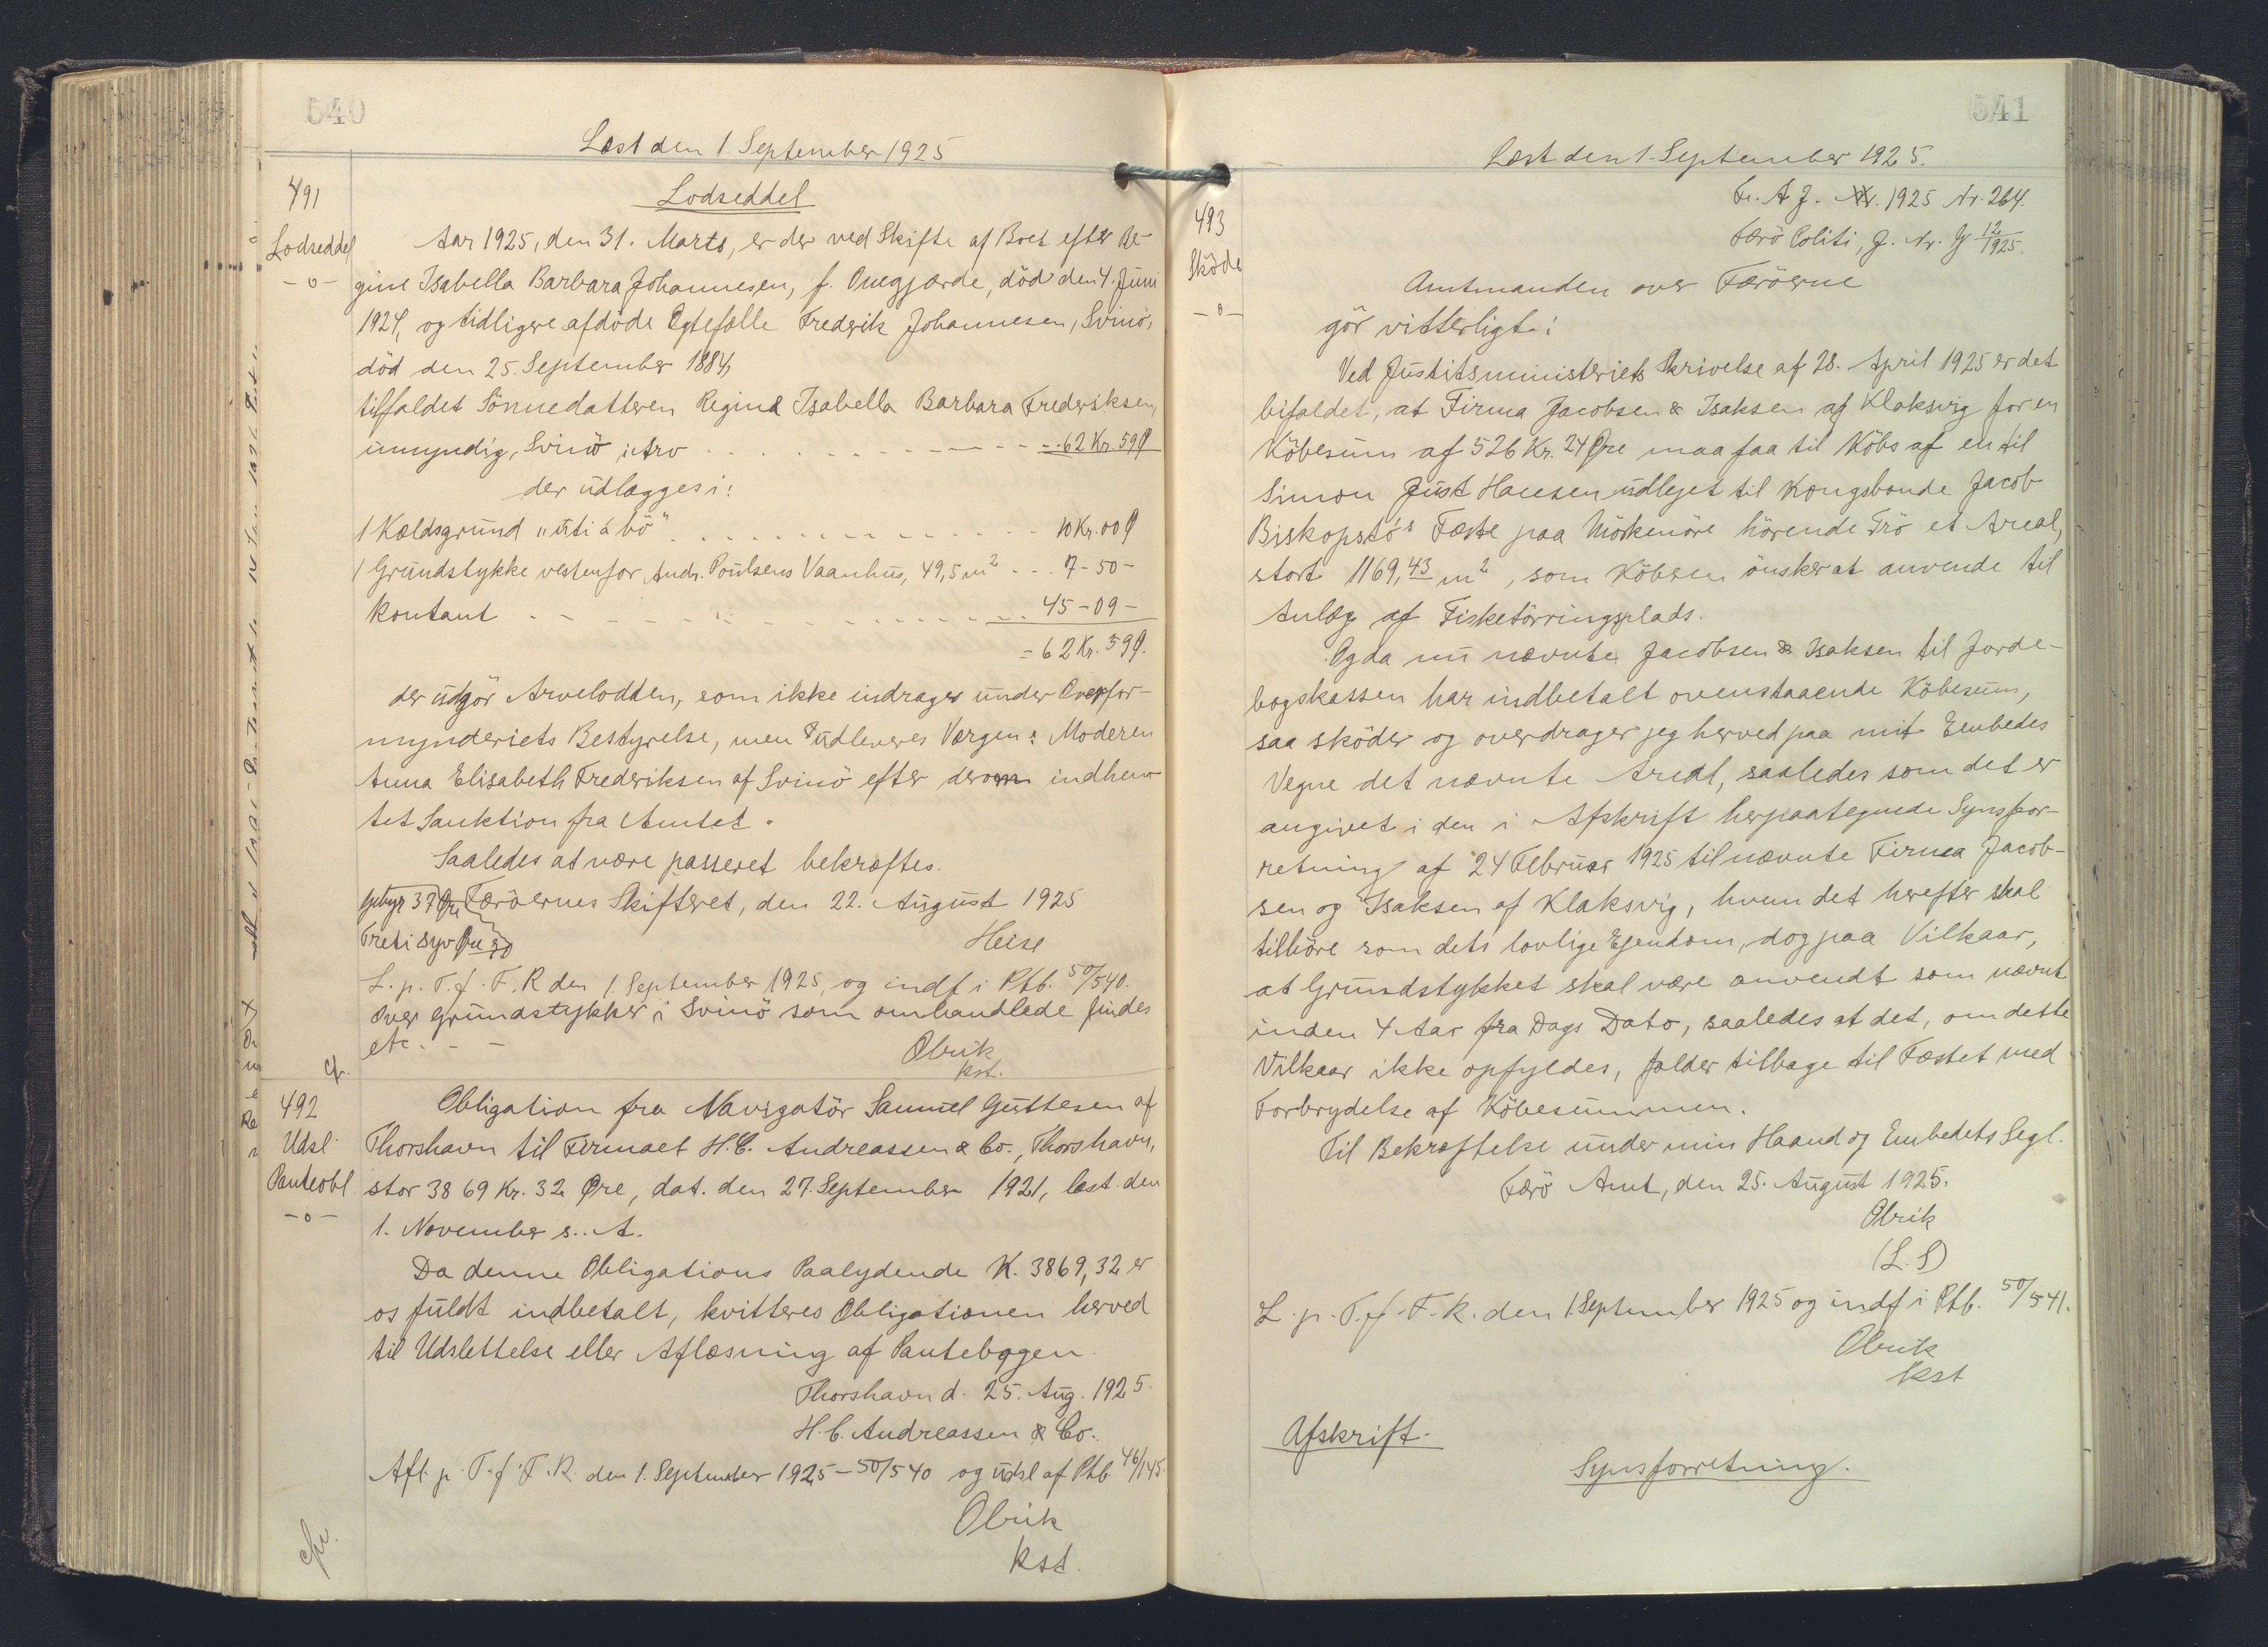 540
Læst den 1. September 1925
491
Lodseddel
- o -
Lodseddel
Aar 1925, den 31. Marts, er der ved Skifte af Boet efter Re-
gine Isabella Barbara Johannesen, f. , död den 4. Juni
1924, og tidligere afdöde Ægtefælle Frederik Johannesen, Svinö,
död den 25. September 1884,
tilfaldet Sönnedatteren Regina Isabella Barbara Frederiksen,
umyndig, Svinö i Arv - - - 62 Kr. 59 Ø
der udlægges i:
1 Kældsgrund "úti á bö" . . . 10 Kr. 00 Ø
1 Grundstykke vestenfor Andr. Poulsens Vaanhus, 49,5 m² . . . 7 - 50 -
Kontant . . . 45 - 09 -
= 62 Kr. 59 Ø.
der udgör Arvelodden, som ikke indrages under Overfor-
mynderiets Bestyrelse, men udleveres Værgen: Moderen
Anna Elisabeth Frederiksen af Svinö efter derom indhen-
tet Sanktion fra Amtet.
Saaledes at være passeret bekræftes.
Gebyr 37 Øre Færöernes Skifteret, den 22. August 1925
Treti syv Øre
Heise
L. p. T. f. F. R den 1. September 1925, og indf i Ptb. 50/540.
Over Grundstykker i Svinö som omhandlede findes
etc. - -
Olrik
kst.
cfr.
492
Udsl.
Panteobl
- o -
Obligation fra Navigatör Samuel Guttesen af
Thorshavn til Firmaet H. C. Andreassen & Co., Thorshavn,
stor 3869 Kr. 32 Øre, dat. den 27. September 1921, læst den
1. November s. A.
Da denne Obligations Paalydende K. 3869,32 er
os fuldt indbetalt, kvitteres Obligationen herved
til Udslettelse eller Aflæsning af Pantebogen.
Thorshavn d. 25. Aug. 1925.
H. C. Andreassen & Co.
Afl. p. T. f. F. R. den 1. September 1925 - 50/540 og udsl af Ptb. 46/145.
Olrik
kst.
541
Læst den 1. September 1925.
493
Sköde
- o -
Fr. A J. Nr. 1925 Nr. 264.
Færö Politi, J. Nr. Y 12/1925.
Amtmanden over Færöerne
gör vitterligt:
Ved Justitsministeriets Skrivelse af 28. April 1925 er det
bifaldet, at Firma Jacobsen & Isaksen af Klaksvig for en
Köbesum af 526 Kr. 24 Øre maa faa til Köbs af en til
Simon Just Hansen udlejet til Kongsbonde Jacob
Biskopstö's Fæste paa Mörkenöre hörende Trö et Areal,
stort 1169,43 m², som Köberen önsker at anvende til
Anlæg af Fisketörringsplads.
Og da nu nævnte Jacobsen & Isaksen til Jorde-
bogskassen har indbetalt ovenstaaende Köbesum,
saa sköder og overdrager jeg herved paa mit Embedes
Vegne det nævnte Areal, saaledes som det er
angivet i den i Afskrift herpaategnede Synsfor-
retning af 24 Februar 1925 til nævnte Firma Jacob-
sen og Isaksen af Klaksvig, hvem det herefter skal
tilhöre som dets lovlige Ejendom, dog paa Vilkaar,
at Grundstykket skal være anvendt som nævnt
inden 4 Aar fra Dags Dato, saaledes at det, om dette
Vilkaar ikke opfyldes, falder tilbage til Fæstet med
Forbrydelse af Köbesummen.
Til Bekræftelse under min Haand og Embedets Segl.
Færö Amt, den 25. August 1925.
Olrik
(L. S)
L. p. T. f. F. R. den 1. September 1925 og indf i Ptb. 50/541.
Olrik
kst
Afskrift.
Synsforretning.